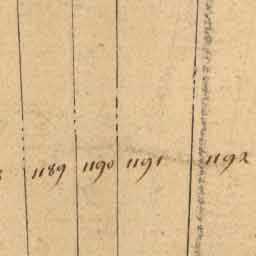 1189 1190 1191 1192